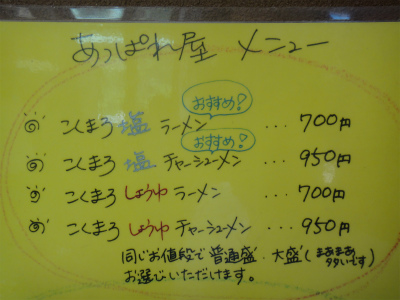 あっぱれ屋 メニュー
おすすめ?
こくまろ 塩 ラーメン ... 700円
おすすめ?
こくまろ 塩 チャーシューメン ... 950円
こくまろ しょうゆ ラーメン ... 700円
こくまろ しょうゆ チャーシューメン ... 950円
同じお値段で 普通盛・大盛(まあまあ多いです)
お選びいただけます。